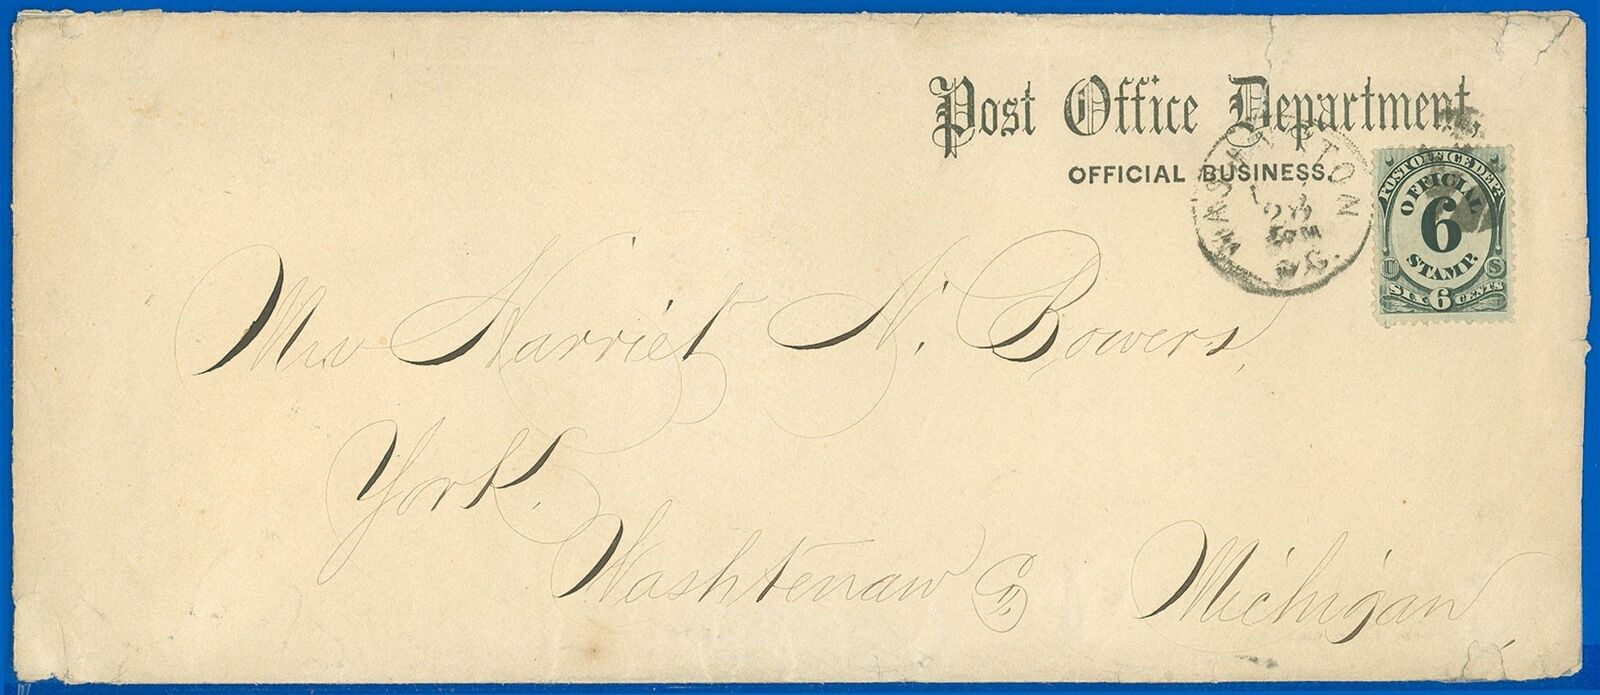 Post Office Department,
OFFICIAL BUSINESS.
WASHINGTON
D.C.
POST OFFICE DEPT.
OFFICIAL
6
STAMP.
U S
SIX 6 CENTS
Mrs Harriet N. Bowers,
York.
Washtenaw Co. Michigan